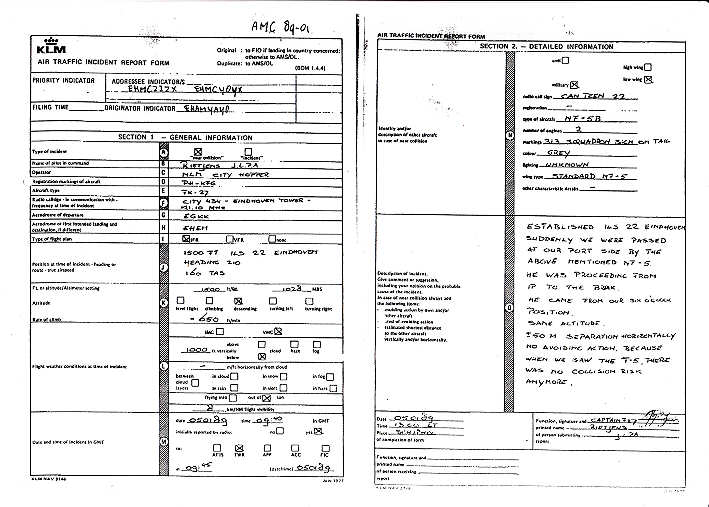 AMC 89-01
KLM
AIR TRAFFIC INCIDENT REPORT FORM
Original : to FIO if landing in country concerned;
otherwise to AMS/OL.
Duplicate: to AMS/OL
(BOM 1.4.4)
PRIORITY INDICATOR
ADDRESSEE INDICATOR/S
FILING TIME
ORIGINATOR INDICATOR
SECTION 1 - GENERAL INFORMATION
Type of incident A "near collision" "incident"
Name of pilot in command B RIETJENS J.L?A
Operator C NLM CITY HOPPER
Registration marking of aircraft D PH-KFG
Aircraft type E FK-27
Radio callsign - in communication with -
frequency at time of incident F CITY 434 - EINDHOVEN TOWER -
Aerodrome of departure G EGKK
Aerodrome of first intended landing and
destination, if different H EHEH
Type of flight plan I IFR VFR none
Position at time of incident - heading or
route - true airspeed J
1500 FT ILS 22 EINDHOVEN
HEADING 210
160 TAS
FL or altitude/Altimeter setting 1500 1028 MBS
Attitude K
level flight climbing descending turning left turning right
Rate of climb - 650 ft/min
IMC VMC
Flight weather conditions at time of incident L
1000 ft vertically above below cloud haze fog
- m/ft horizontally from cloud
between cloud layers in cloud in snow in fog
in rain in sleet in haze
flying into out of sun
8 km/NM flight visibility
Date and time of incidents in GMT M
date 050189 time 09:40 in GMT
initially reported by radio: no yes
to: AFIS TWR APP ACC FIC
at 09:45 (date/time) 050189
KLM NAV
AIR TRAFFIC INCIDENT REPORT FORM
SECTION 2. - DETAILED INFORMATION
Identity and/or
description of other aircraft
in case of near collision
N
civil
high wing
low wing
military
radio call sign CANTEEN 22
registration -
type of aircraft NF-5B
number of engines 2
markings 313 SQUADRON SIGN ON TAIL
colour GREY
lighting UNKNOWN
wing type STANDARD NF-5
other characteristic details -
Description of incident.
Give comment or suggestion,
including your opinion on the probable
cause of the incident.
In case of near collision always add
the following items:
- avoiding action by own and/or
other aircraft
- kind of avoiding action
- estimated shortest distance
to the other aircraft
vertically and/or horizontally.
O
ESTABLISHED ILS 22 EINDHOVEN
SUDDENLY WE WERE PASSED
AT OUR PORT SIDE BY THE
ABOVE MENTIONED NF-5.
HE WAS PROCEEDING FROM
IP TO THE BRAK.
HE CAME FROM OUR SIX O'CLOCK
POSITION.
SAME ALTITUDE.
±50 M SEPARATION HORIZONTALLY
NO AVOIDING ACTION, BECAUSE
WHEN WE SAW THE F-5, THERE
WAS NO COLLISION RISK
ANYMORE.
Date 050189
Time
Place
of completion of form
Function, signature and CAPTAIN F27
printed name RIETJENS
of person submitting
report
Function, signature and
printed name
of person receiving
report